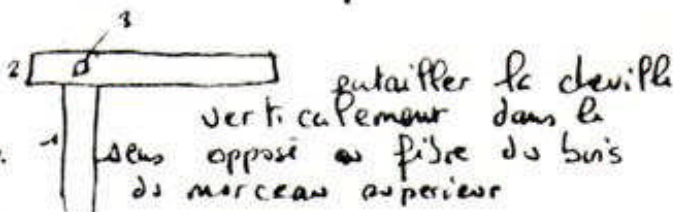 3
2
entailler la cheville
verticalement dans le
1 sens opposé au fibre du bois
du morceau superieur